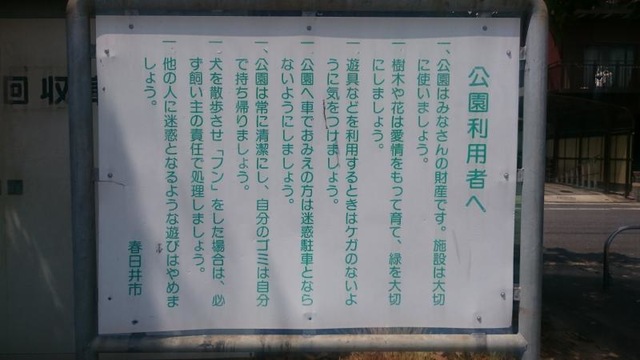 公園利用者へ
一、公園はみなさんの財産です。施設は大切
に使いましょう。
一、樹木や花は愛情をもって育て、緑を大切
にしましょう。
一、遊具などを利用するときはケガのないよ
うに気をつけましょう。
一、公園へ車でおみえの方は迷惑駐車となら
ないようにしましょう。
一、公園は常に清潔にし、自分のゴミは自分
で持ち帰りましょう。
一、犬を散歩させ「フン」をした場合は、必
ず飼い主の責任で処理しましょう。
一、他の人に迷惑となるような遊びはやめま
しょう。
春日井市
回収